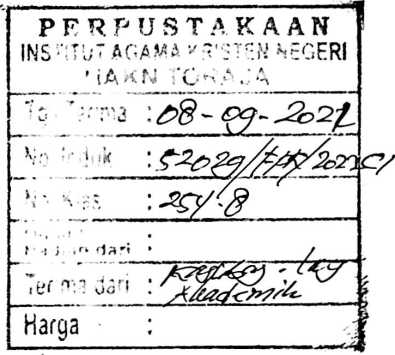 PERPUSTAKAAN
INSTITUT AGAMA KRISTEN NEGERI
IAKN TORAJA
Tgl Terima : 08-09-2021
No. Induk : 52029/
No. Klas : 254.8
Hadiah dari :
Terima dari : Akademik
Harga :